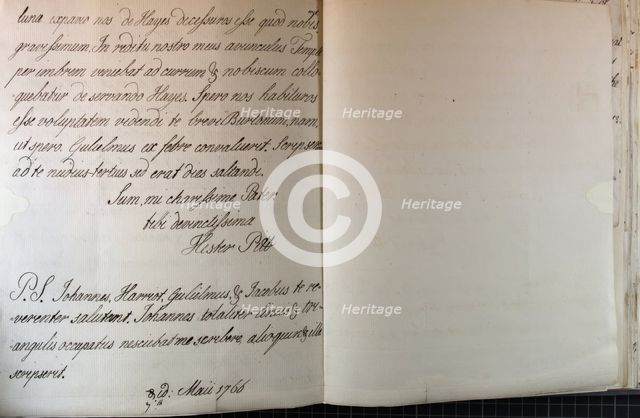 luna expavo nos de Hayes decessuros esse quod nobis
gravissimum. In reditu nostro meus avunculus Temple
per imbrem veniebat ad currum & nobiscum collo-
quebatur de servando Hayes. Spero nos habituros
esse voluptatem videndi te brevi Burtonum, nam
ut spero Gulielmus ex febre convaluerit. Scripsissem
ad te nudius-tertius sed erat dies saltandi.
Sum, mi charissime Pater
tibi devinctissima
Hester Pitt
P.S. Johannes, Harriot, Gulielmus, & Jacobus te re-
verenter salutant. Johannes totaliter circulis & tri-
angulis occupatus nesciebat me scribere, alioquin & ille
scripserit.
Maii 1766
Heritage
Heritage
Heritage
Heritage
Heritage
Heritage
C